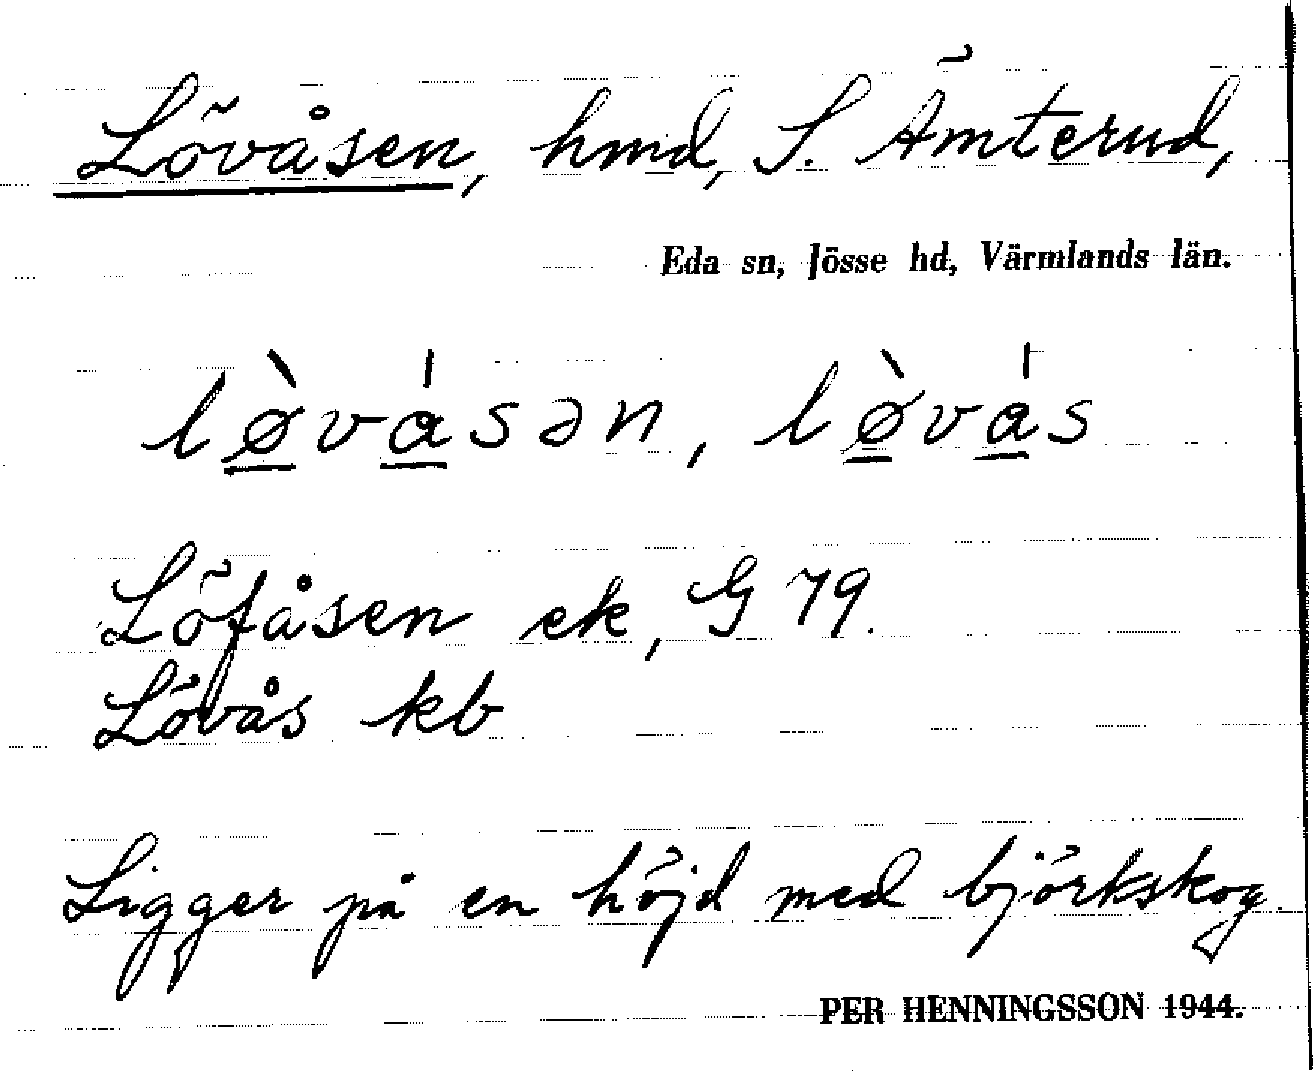 Lövåsen, hmd, S. Ämterud,
Eda sn, Jösse hd, Värmlands län.
lø̀vásən, lø̀vás
Löfåsen ek, G 79.
Lövås kb
Ligger på en höjd med björkskog.
PER HENNINGSSON 1944.